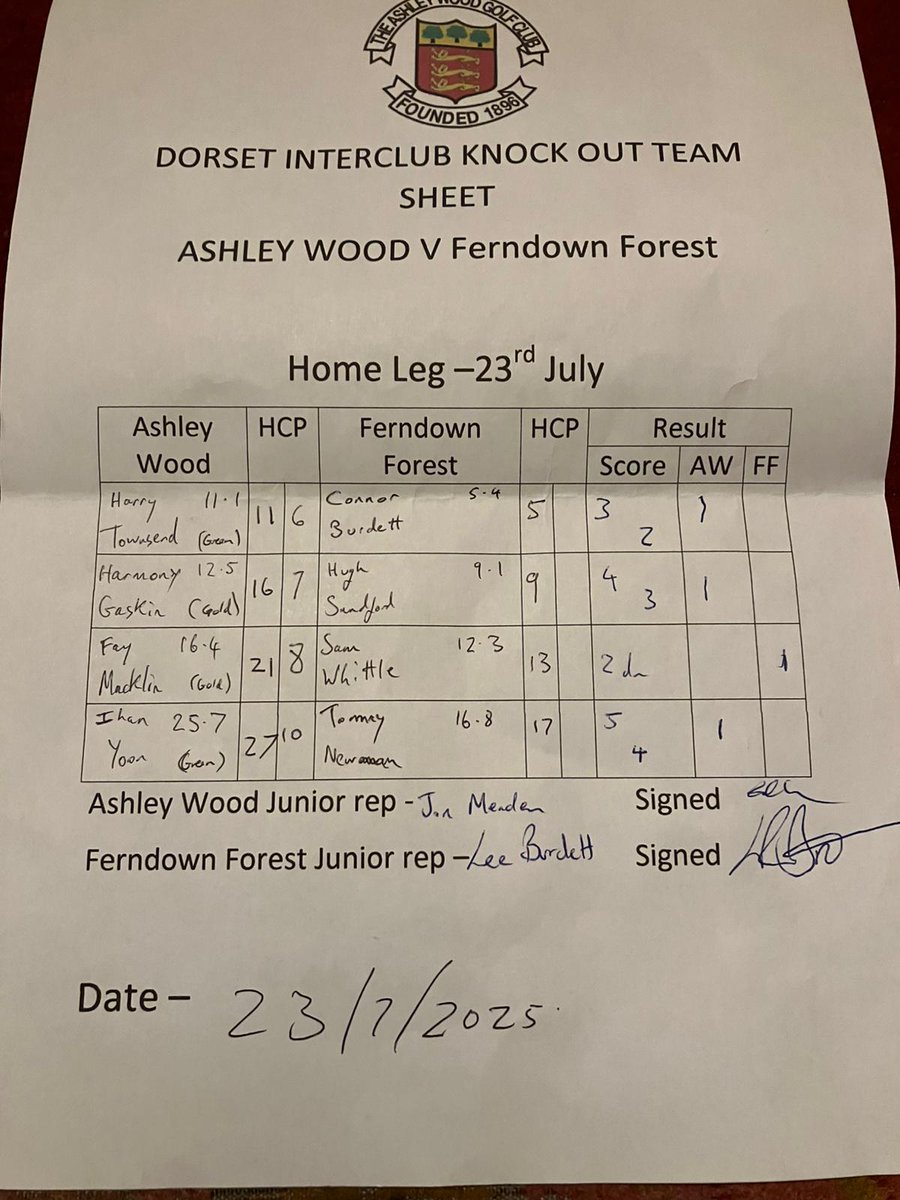 THE ASHLEY WOOD GOLF CLUB
FOUNDED 1896
DORSET INTERCLUB KNOCK OUT TEAM
SHEET
ASHLEY WOOD V Ferndown Forest
Home Leg –23rd July
Ashley Wood HCP Ferndown Forest HCP Result
Score AW FF
Harry 11.1 11 6 Connor 5.4 5 3 1
Townsend (Green) Burdett 2
Harmony 12.5 16 7 Hugh 9.1 9 4 1
Gaskin (Gold) Sandford 3
Fay 16.4 21 8 Sam 12.3 13 2dn 1
Macklin (Gold) Whittle
Ihan 25.7 27 10 Tommy 16.8 17 5 1
Yoon (Green) Newman 4
Ashley Wood Junior rep - Jon Meaden Signed
Ferndown Forest Junior rep – Lee Burdett Signed
Date – 23/7/2025